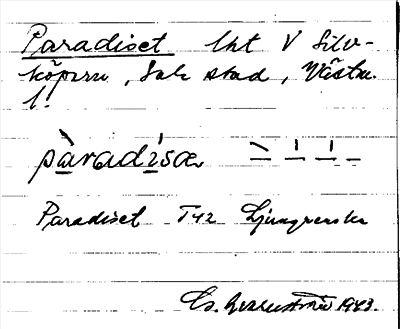 Paradiset lht V Silv-
köpnu, Sala stad, Västm.
l.
paradisœ
Paradiset T42 Ljungvenska
1943.